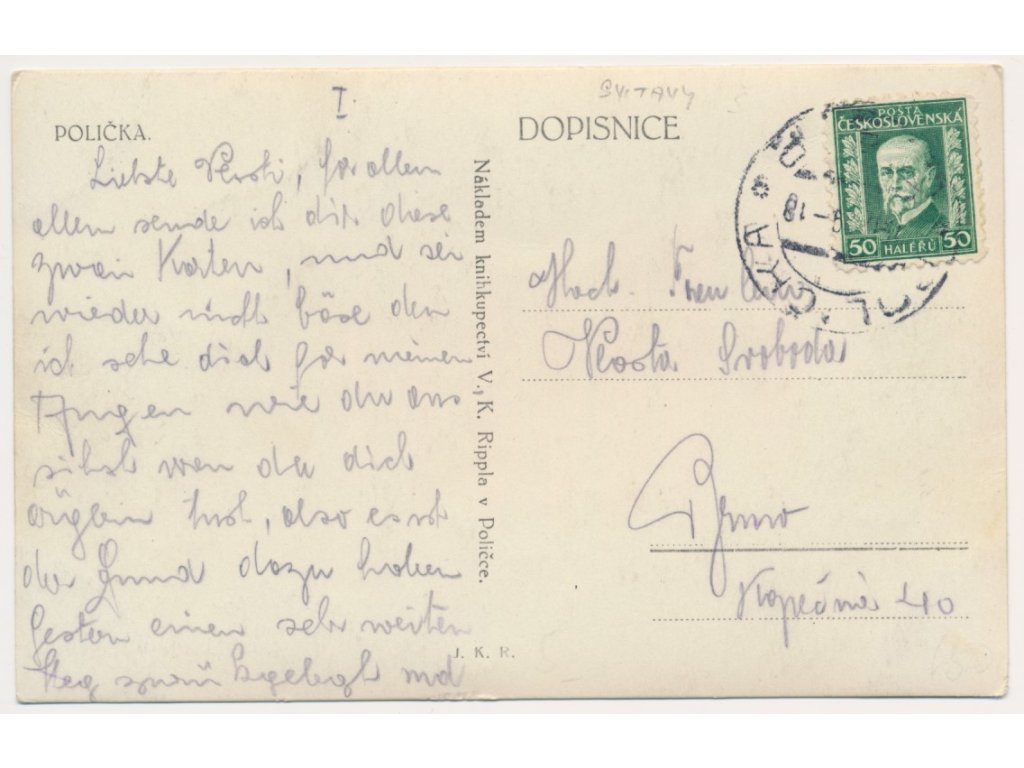 POLIČKA.
I.
SVITAVY
DOPISNICE
POSTA
ČESKOSLOVENSKÁ
50 HALÉŘŮ 50
Liebste Vlasti, for allem
allem sende ich dir diese
zwai Karten, und sei
wieder nicht böse den
ich sehe dich for meinen
Augen wie du aus
sihst wen du dich
tust, also es ist
der Grund dazu haben
Gestern einen sehr weiten
Weg zurückgelegt und
Nákladem knihkupectví V., K. Rippla v Poličce.
J. K. R.
Vlasta Svoboda
Brno
Kopečná 40